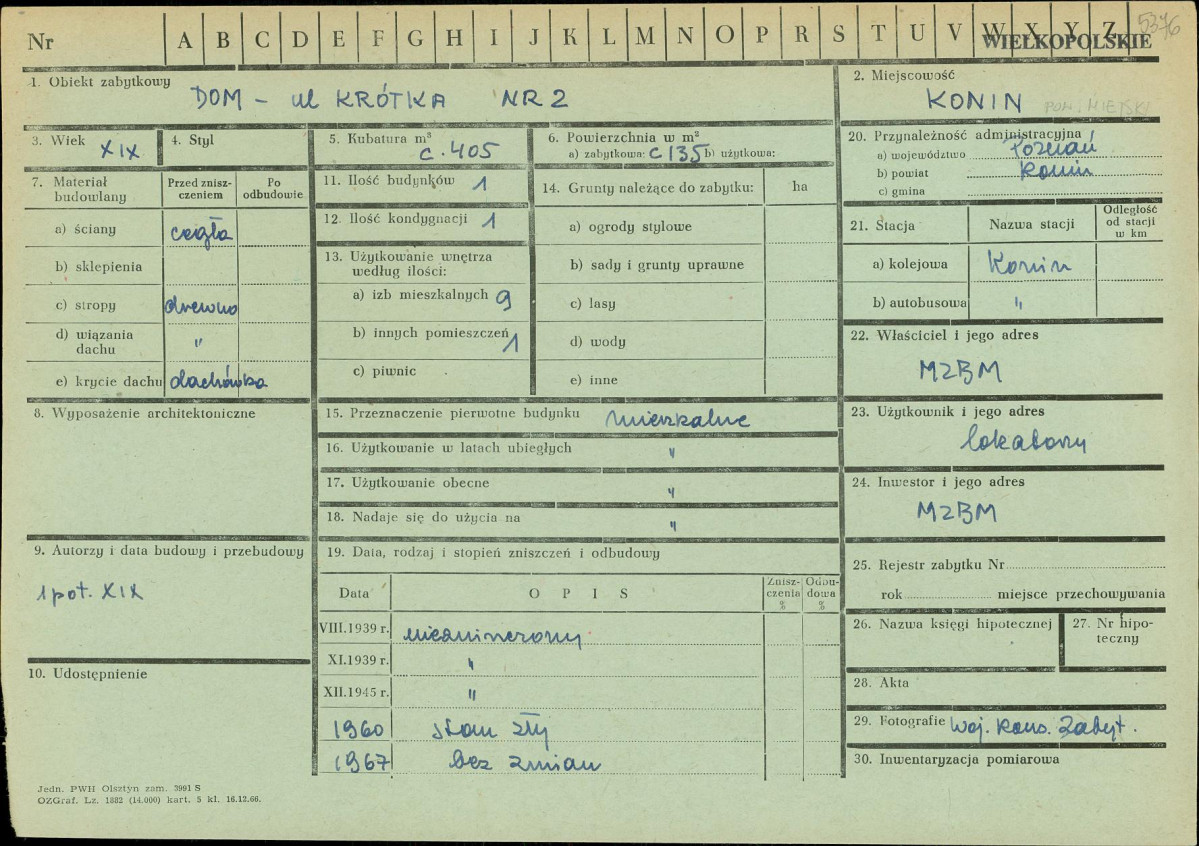 Nr A B C D E F G H I J K L M N O P R S T U V W X Y Z 5376
WIELKOPOLSKIE
1. Obiekt zabytkowy
DOM – ul KRÓTKA NR 2
2. Miejscowość
KONIN POW. MIEJSKI
3. Wiek XIX
4. Styl
5. Kubatura m³
c. 405
6. Powierzchnia w m²
a) zabytkowa: c 135 b) użytkowa:
20. Przynależność administracyjna
a) województwo Poznań
b) powiat Konin
c) gmina
7. Materiał budowlany
Przed znisz-
czeniem
Po
odbudowie
a) ściany cegła
b) sklepienia
c) stropy drewno
d) wiązania
dachu "
e) krycie dachu dachówka
11. Ilość budynków 1
12. Ilość kondygnacji 1
13. Użytkowanie wnętrza
według ilości:
a) izb mieszkalnych 9
b) innych pomieszczeń 1
c) piwnic
14. Grunty należące do zabytku: ha
a) ogrody stylowe
b) sady i grunty uprawne
c) lasy
d) wody
e) inne
21. Stacja
Nazwa stacji
Odległość
od stacji
w km
a) kolejowa Konin
b) autobusowa "
22. Właściciel i jego adres
MZBM
8. Wyposażenie architektoniczne
15. Przeznaczenie pierwotne budynku mieszkalne
16. Użytkowanie w latach ubiegłych "
17. Użytkowanie obecne "
18. Nadaje się do użycia na "
23. Użytkownik i jego adres
lokatorzy
24. Inwestor i jego adres
MZBM
9. Autorzy i data budowy i przebudowy
1 poł. XIX
10. Udostępnienie
19. Data, rodzaj i stopień zniszczeń i odbudowy
Data
O P I S
Znisz-
czenia
%
Odbu-
dowa
%
VIII.1939 r. niezniszczony
XI.1939 r. "
XII.1945 r. "
1960 stan zły
1967 bez zmian
25. Rejestr zabytku Nr
rok miejsce przechowywania
26. Nazwa księgi hipotecznej
27. Nr hipo-
teczny
28. Akta
29. Fotografie Woj. Kons. Zabyt.
30. Inwentaryzacja pomiarowa
Jedn. PWH Olsztyn zam. 3991 S
OZGraf. Lz. 1882 (14.000) kart. 5 kl. 16.12.66.